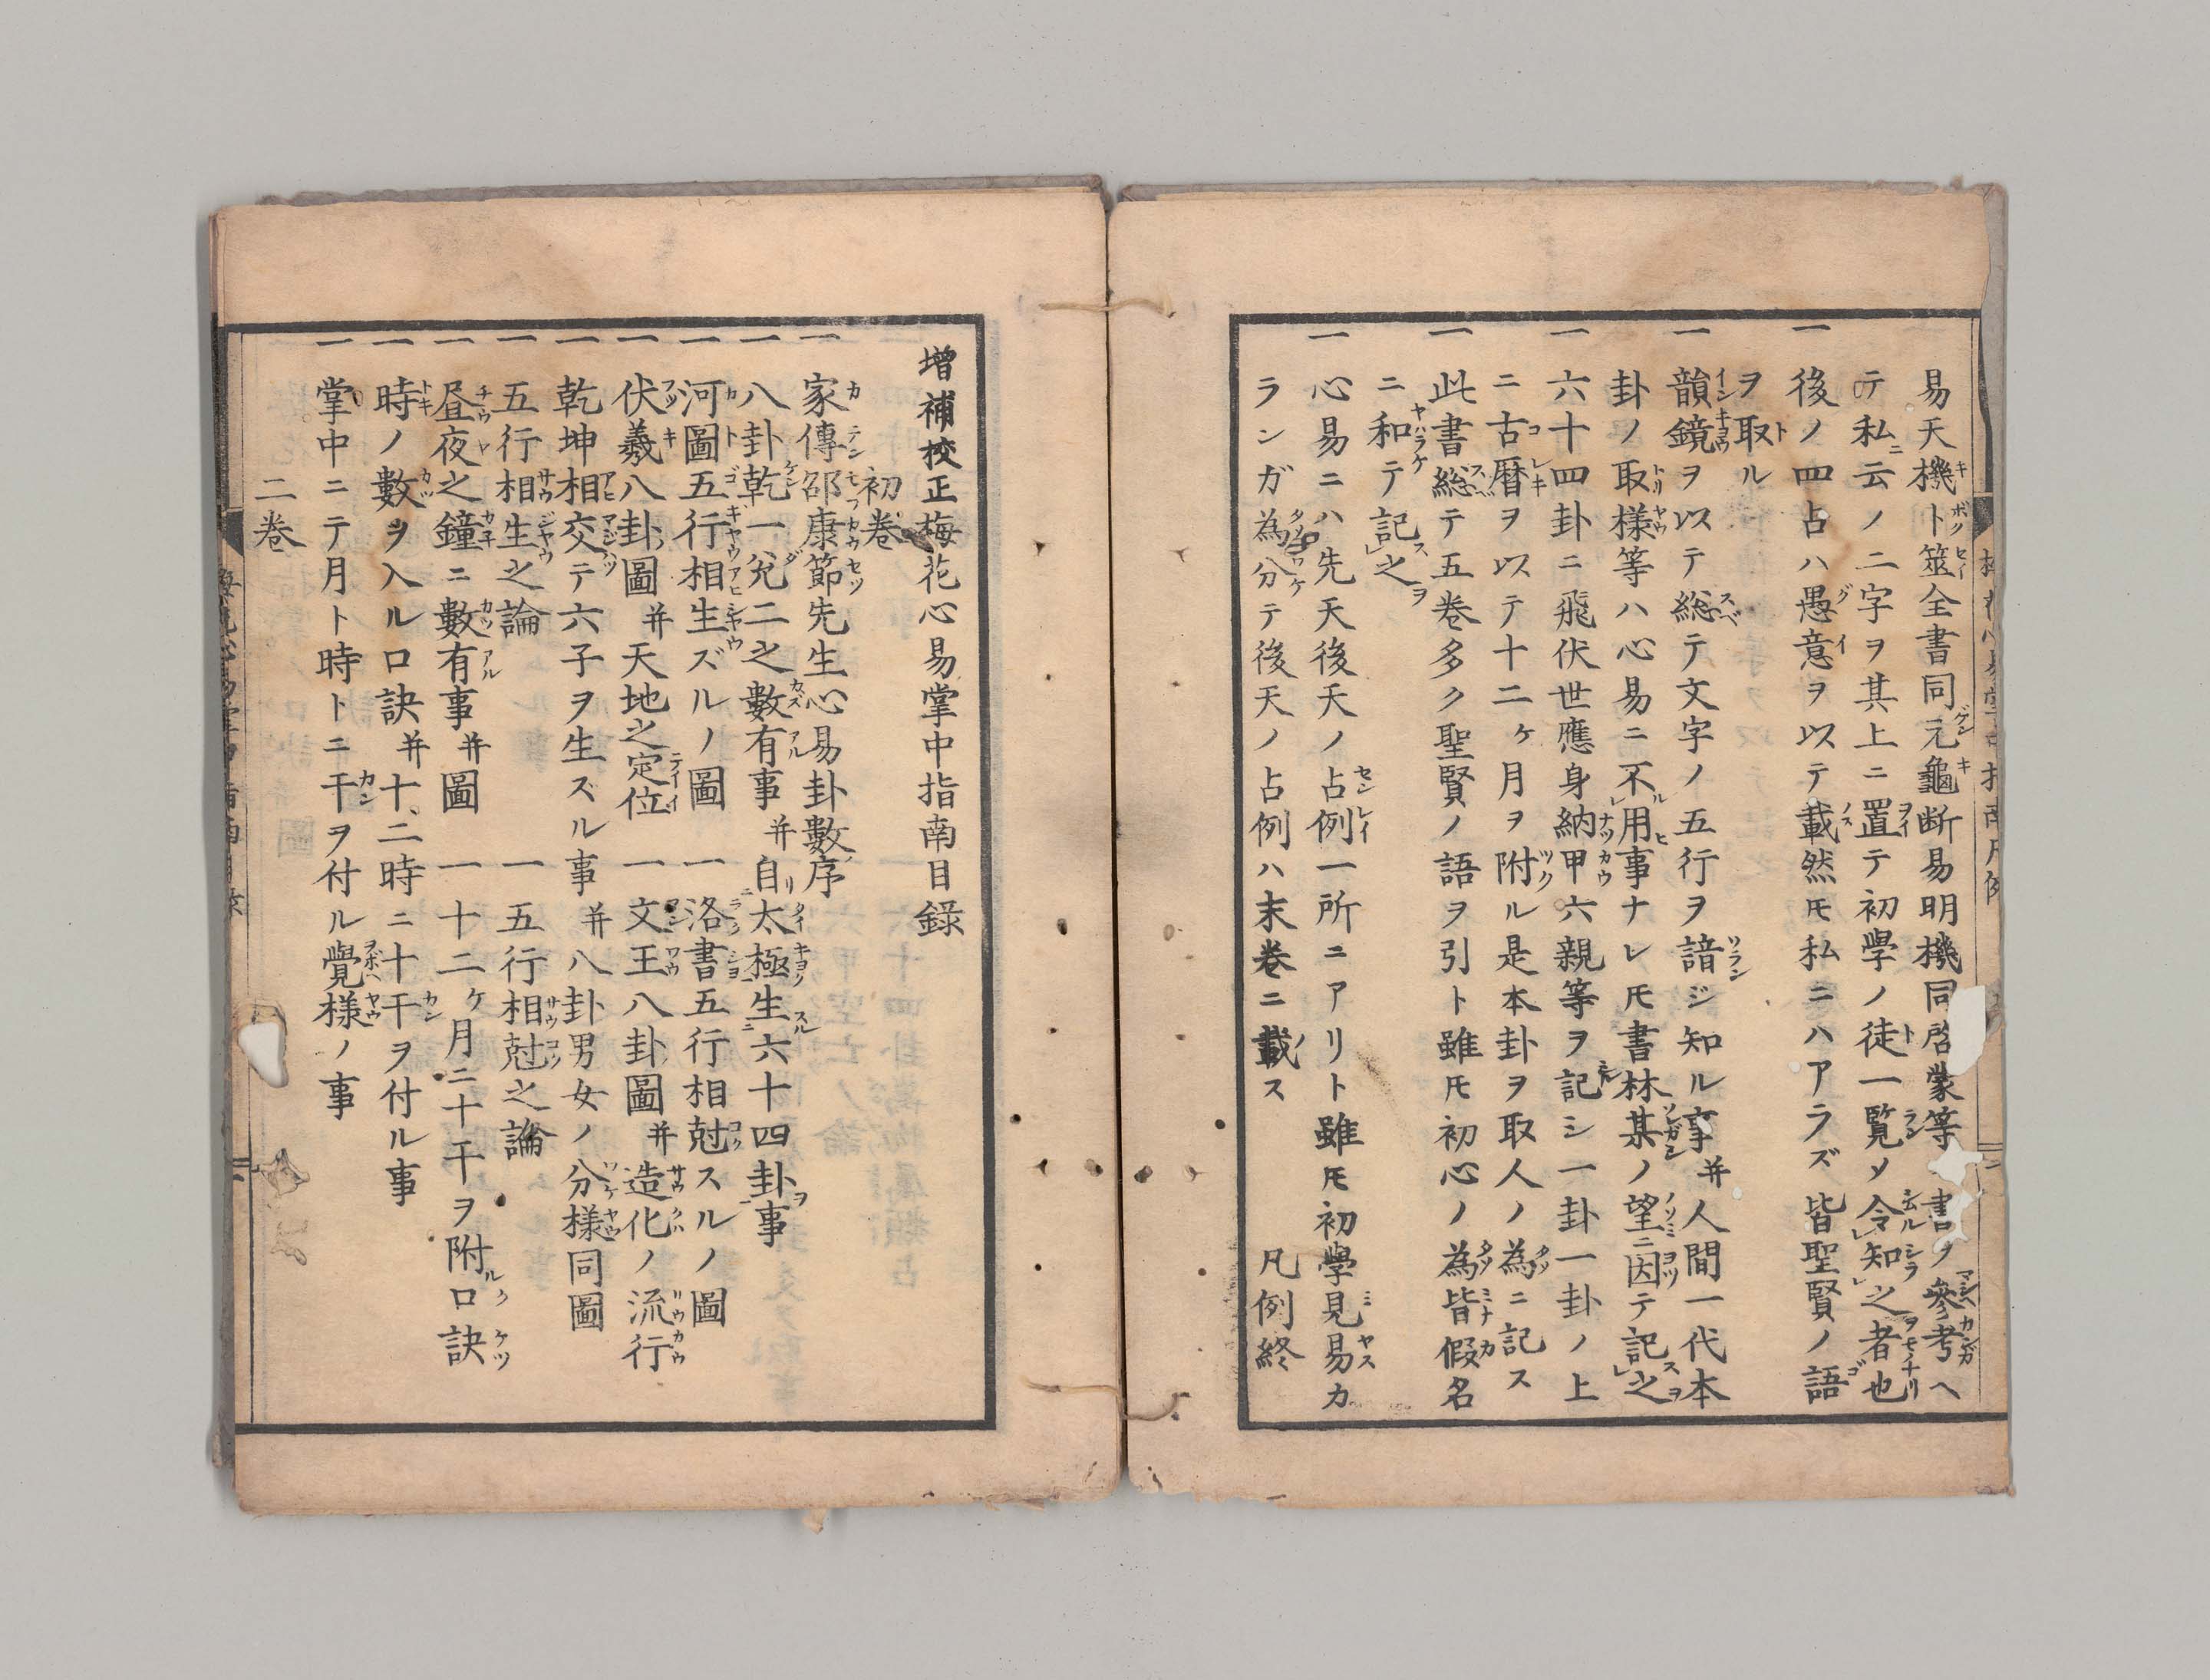 易天機卜筮全書同元龜断易明機同啓蒙等ノ書ヲ參考ヘ
テ私ニ云ノ二字ヲ其上ニ置テ初學ノ徒一覧メ令知之者也
一後ノ四占ハ愚意ヲ以テ載然モ私ニハアラズ皆聖賢ノ語
ヲ取ル
一韻鏡ヲ以テ総テ文字ノ五行ヲ諳ジ知ル事并人間一代本
卦ノ取様等ハ心易ニ不用事ナレ𪜈書林某ノ望ニ因テ記之
一六十四卦ニ飛伏世應身納甲六親等ヲ記シ一卦一卦ノ上
ニ古暦ヲ以テ十二ヶ月ヲ附ル是本卦ヲ取人ノ為ニ記ス
一此書総テ五巻多ク聖賢ノ語ヲ引ト雖𪜈初心ノ為皆假名
ニ和テ記之
一心易ニハ先天後天ノ占例一所ニアリト雖𪜈初學見易カ
ランガ為分テ後天ノ占例ハ末巻ニ載ス 凡例終
増補校正梅花心易掌中指南目録
初巻
一家傳邵康節先生心易卦數序
一八卦乾一兌二之數有事并自太極生六十四卦事
一河圖五行相生ズルノ圖 一洛書五行相尅スルノ圖
一伏羲八卦圖并天地之定位 一文王八卦圖并造化ノ流行
一乾坤相交テ六子ヲ生ズル事并八卦男女ノ分様同圖
一五行相生之論 一五行相尅之論
一昼夜之鐘ニ數有事并圖 一十二ヶ月ニ十干ヲ附ロ訣
一時ノ數ヲ入ル口訣并十二時ニ十干ヲ付ル事
一掌中ニテ月ト時トニ干ヲ付ル覺様ノ事
二巻